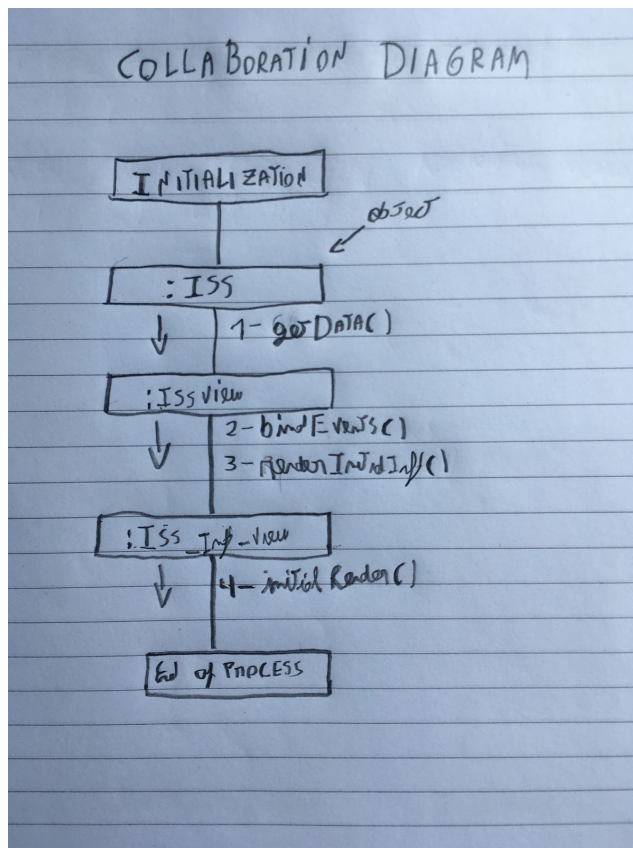 COLLABORATION DIAGRAM
INITIALIZATION
object
:ISS
1- getDATA()
:ISS view
2- bindEvents()
3- renderInitialInf()
:ISS_Inf_view
4- initialRender()
End of PROCESS